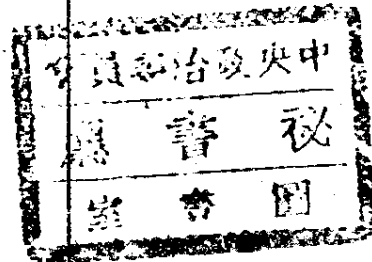 中央政治委員會
秘書處
圖書室